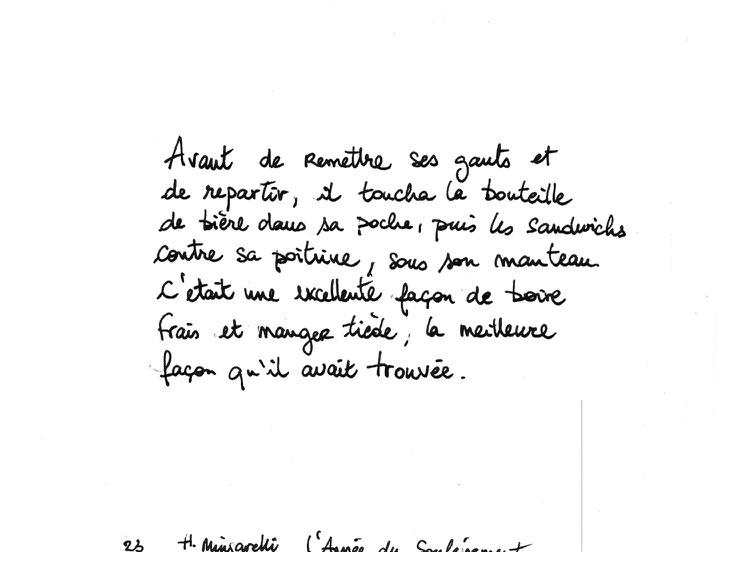 Avant de remettre ses gants et
de repartir, il toucha la bouteille
de bière dans sa poche, puis les sandwichs
contre sa poitrine, sous son manteau.
C'était une excellente façon de boire
frais et manger tiède, la meilleure
façon qu'il avait trouvée.
23 H. Mingarelli L'Année du Soulèvement